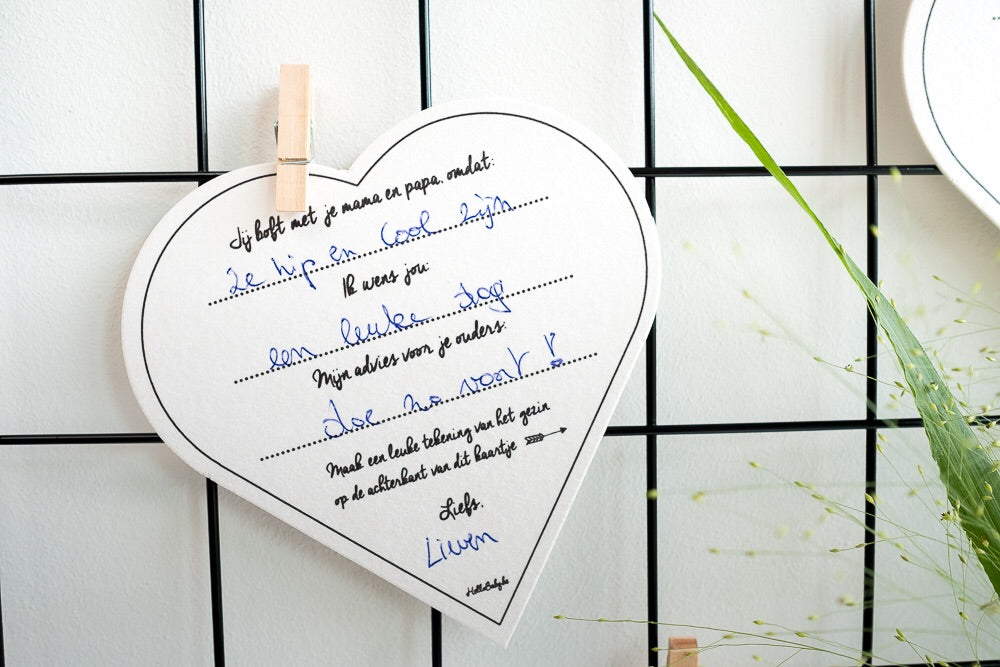 Jij boft met je mama en papa, omdat:
ze hip en cool zijn
Ik wens jou:
een leuke dag
Mijn advies voor je ouders:
doe zo voort!
Maak een leuke tekening van het gezin
op de achterkant van dit kaartje
Liefs,
Lieven
HelloBaby.be